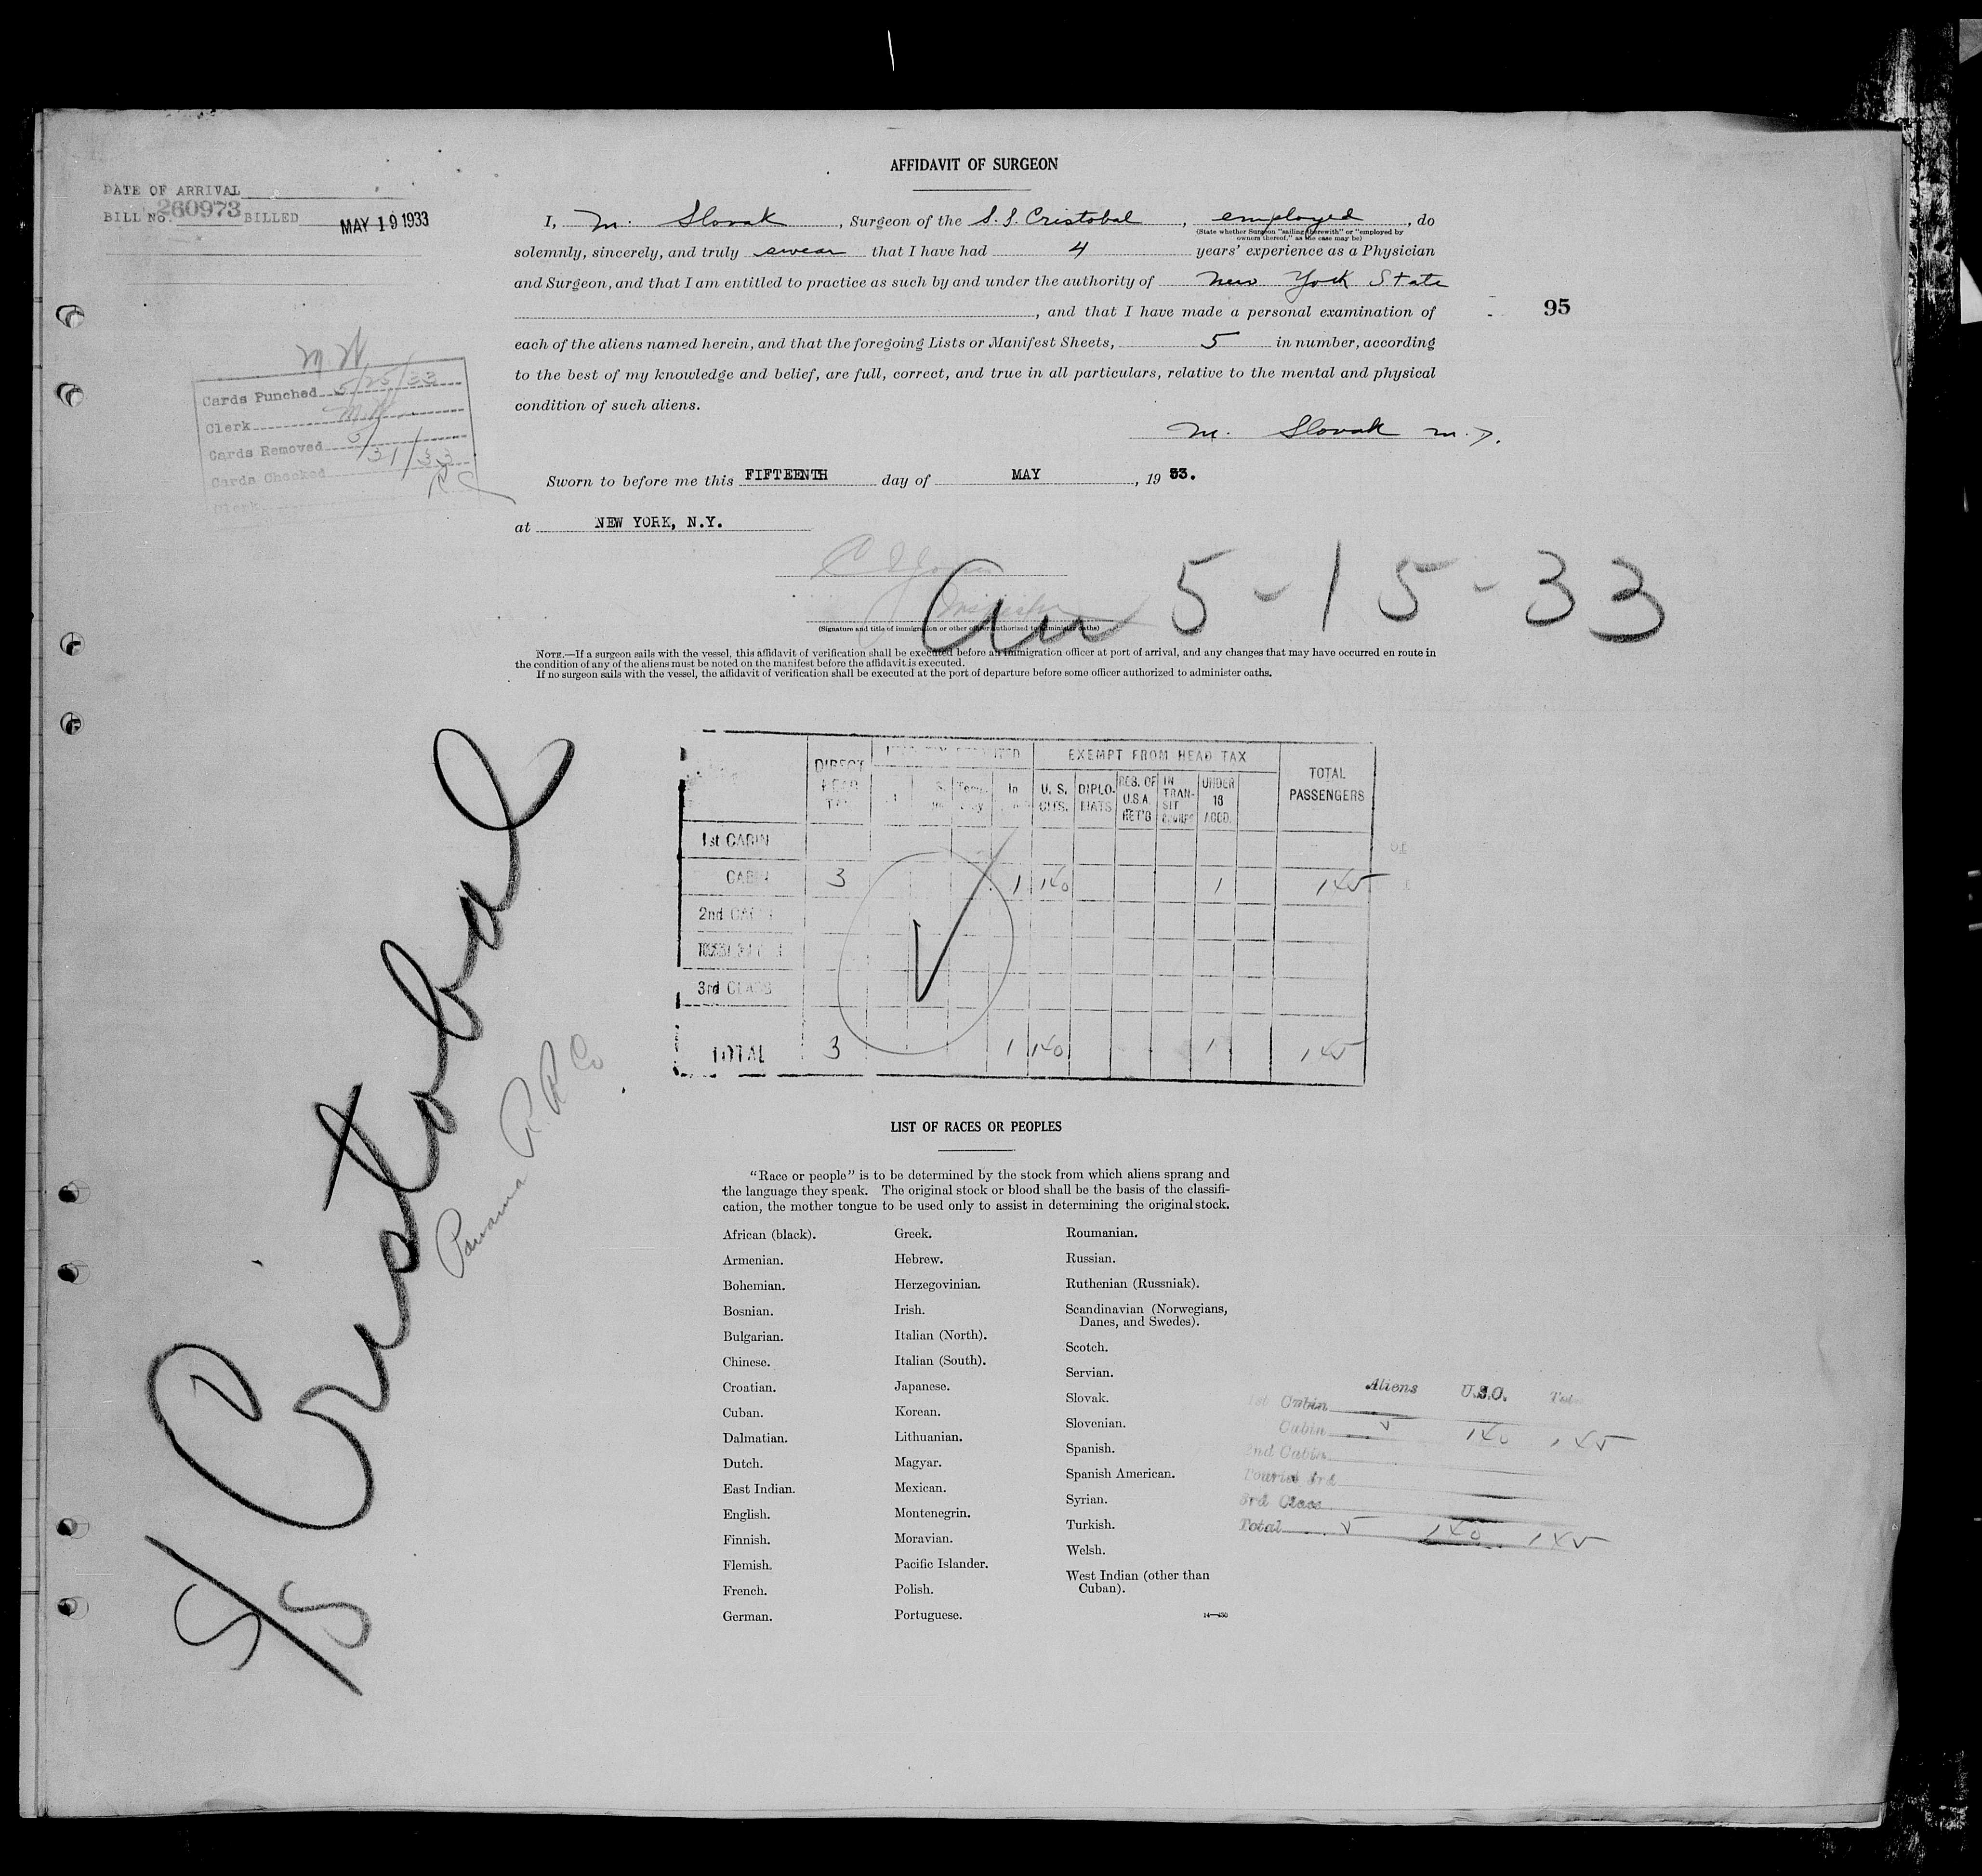 AFFIDAVIT OF SURGEON
DATE OF ARRIVAL
BILL No. 260973 BILLED MAY 19 1933
I, M. Slovak, Surgeon of the S.S. Cristobal, employed, do
(State whether Surgeon "sailing therewith" or "employed by
owners thereof," as the case may be)
solemnly, sincerely, and truly swear that I have had 4 years' experience as a Physician
and Surgeon, and that I am entitled to practice as such by and under the authority of New York State
, and that I have made a personal examination of
95
each of the aliens named herein, and that the foregoing Lists or Manifest Sheets, 5 in number, according
to the best of my knowledge and belief, are full, correct, and true in all particulars, relative to the mental and physical
condition of such aliens.
M. Slovak M.D.
M.W.
Cards Punched 5/25/33
Clerk M.W.
Cards Removed
Cards Checked 5/31/33
Clerk RC
Sworn to before me this FIFTEENTH day of MAY, 1933.
at NEW YORK, N.Y.
Inspector
Arr 5-15-33
(Signature and title of immigration or other officer authorized to administer oaths)
NOTE.—If a surgeon sails with the vessel, this affidavit of verification shall be executed before an immigration officer at port of arrival, and any changes that may have occurred en route in
the condition of any of the aliens must be noted on the manifest before the affidavit is executed.
If no surgeon sails with the vessel, the affidavit of verification shall be executed at the port of departure before some officer authorized to administer oaths.
S/S Cristobal
Panama R.R. Co
DIRECT HEAD TAX
EXEMPT FROM HEAD TAX
TOTAL PASSENGERS
In
U.S. CITS.
DIPLOMATS
RES. OF U.S.A. RET'G
IN TRANSIT
UNDER 16 ACCD.
1st CABIN
CABIN 3 1 140 1 145
2nd CABIN
3rd CLASS
TOTAL 3 1 140 1 145
LIST OF RACES OR PEOPLES
"Race or people" is to be determined by the stock from which aliens sprang and
the language they speak. The original stock or blood shall be the basis of the classifi-
cation, the mother tongue to be used only to assist in determining the original stock.
African (black).
Armenian.
Bohemian.
Bosnian.
Bulgarian.
Chinese.
Croatian.
Cuban.
Dalmatian.
Dutch.
East Indian.
English.
Finnish.
Flemish.
French.
German.
Greek.
Hebrew.
Herzegovinian.
Irish.
Italian (North).
Italian (South).
Japanese.
Korean.
Lithuanian.
Magyar.
Mexican.
Montenegrin.
Moravian.
Pacific Islander.
Polish.
Portuguese.
Roumanian.
Russian.
Ruthenian (Russniak).
Scandinavian (Norwegians,
Danes, and Swedes).
Scotch.
Servian.
Slovak.
Slovenian.
Spanish.
Spanish American.
Syrian.
Turkish.
Welsh.
West Indian (other than
Cuban).
Aliens U.S.C.
1st Cabin
Cabin 5 140 145
2nd Cabin
Tourist 3rd
3rd Class
Total 5 140 145